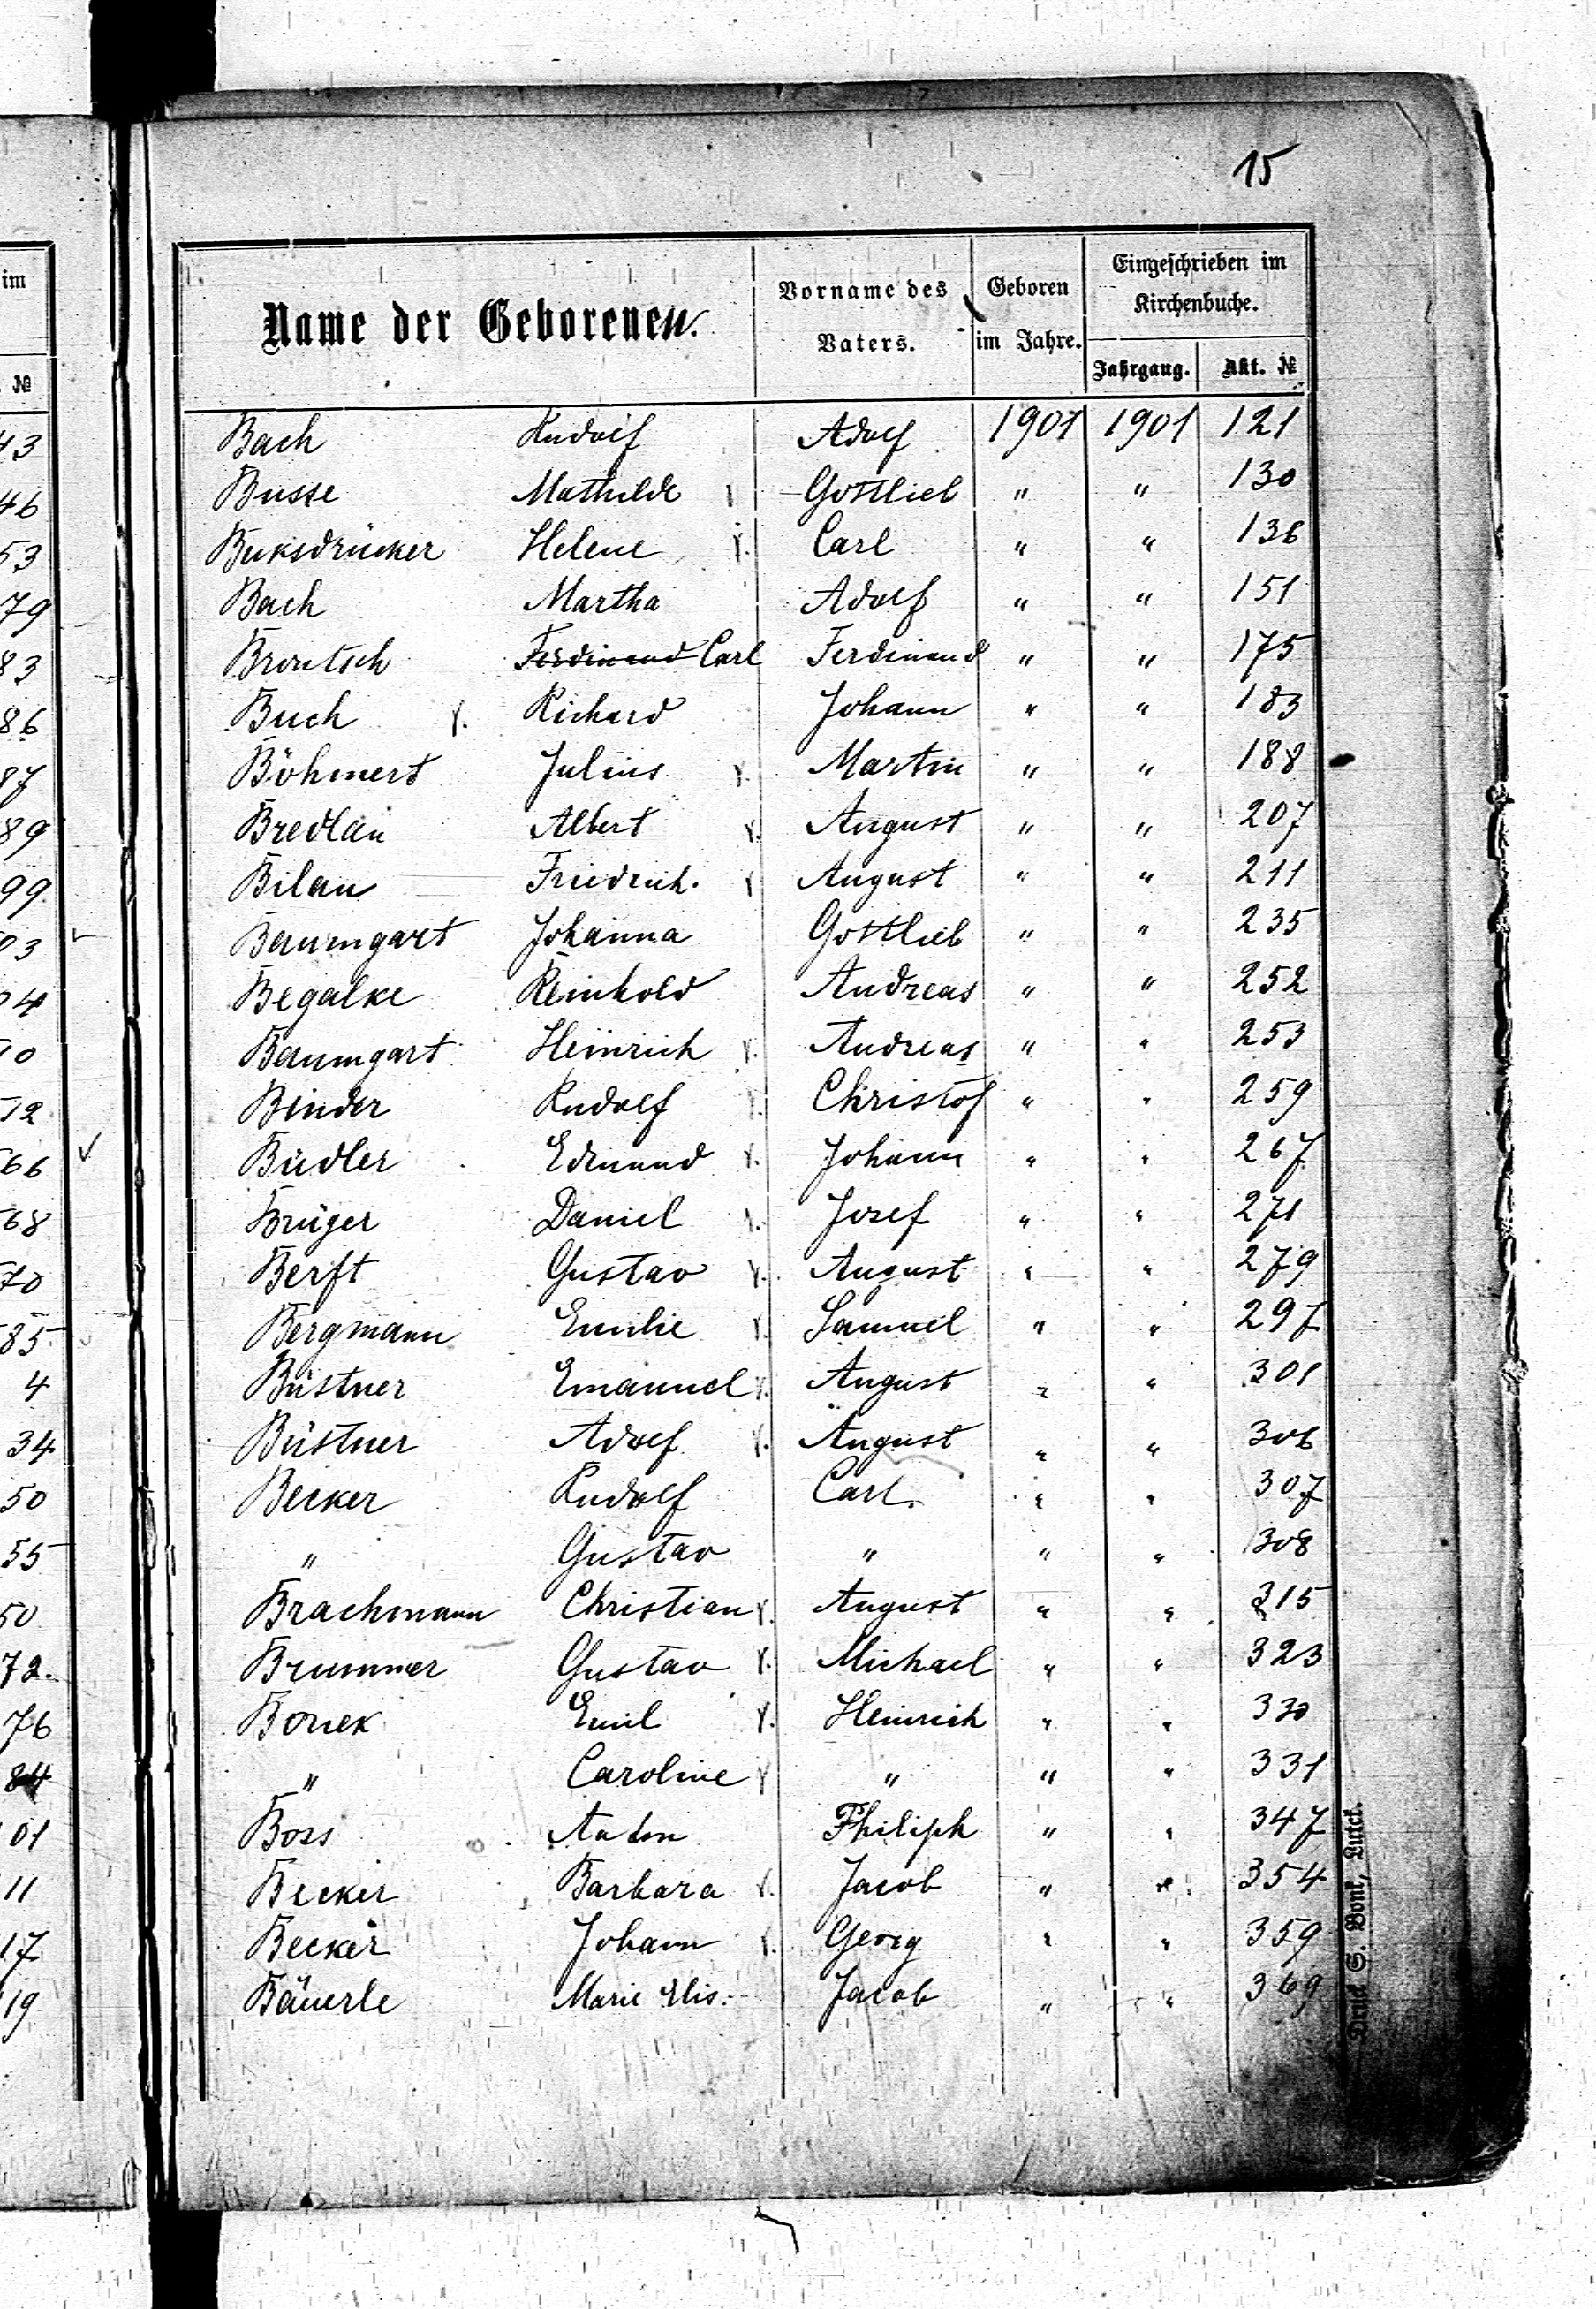 15
im
Name der Geborenen.
Vorname des Vaters.
Geboren im Jahre.
Eingeschrieben im Kirchenbuche.
Jahrgang. Akt. №
№
43 Bach Rudolf Adolf 1901 1901 121
46 Busse Mathilde Gottlieb " " 130
53 Buksdrücker Helene Carl " " 136
79 Bach Martha Adolf " " 151
83 Brontsch Ferdinand Carl Ferdinand " " 175
86 Buch Richard Johann " " 183
87 Böhmert Julius Martin " " 188
89 Bredlau Albert August " " 207
99 Bilau Friedrich. August " " 211
03 Baumgart Johanna Gottlieb " " 235
04 Begalke Reinhold Andreas " " 252
10 Baumgart Heinrich Andreas " " 253
12 Binder Rudolf Christof " " 259
66 Büdler Edmund Johann " " 267
68 Brüger Daniel Josef " " 271
70 Berft Gustav August " " 279
85 Bergmann Emilie Samuel " " 297
4 Büstner Emanuel August " " 301
34 Büstner Adolf August " " 306
50 Becker Rudolf Carl. " " 307
55 " Gustav " " " 308
50 Brachmann Christian August " " 315
72. Brummer Gustav Michael " " 323
76 Bonek Emil Heinrich " " 330
84 " Caroline " " " 331
01 Boss Anton Philiph " " 347
11 Becker Barbara Jacob " " 354
17 Becker Johann Georg " " 359
19 Bäuerle Marie Elis. Jacob " " 369
Druck S. Bonk, Luck.